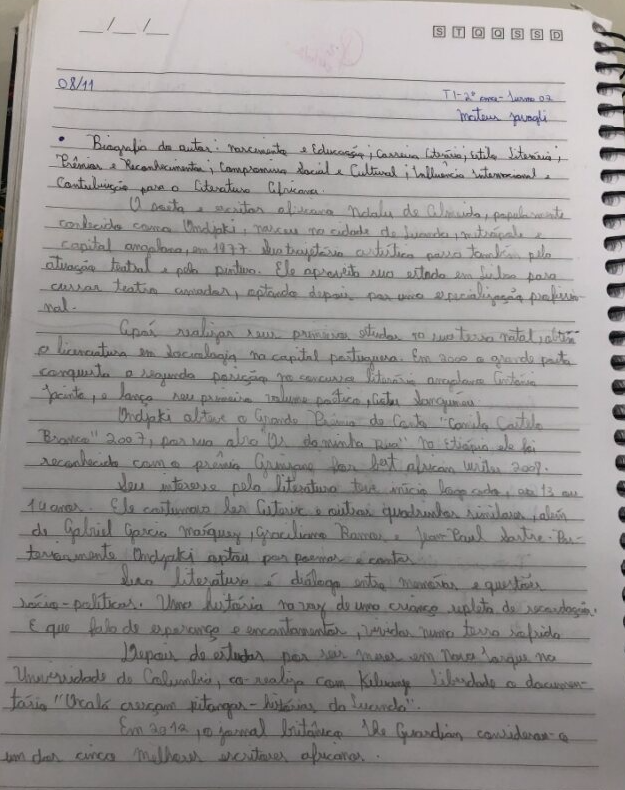 __/__/__
S T Q Q S S D
08/11
T1-2º ano - Turma 02
Mateus
• Biografia do autor: narcimento e Educação; Carreira Literária; Estilo Literário;
Prêmios e Reconhecimento; Compromisso Social e Cultural; Influência Internacional e
Contribuição para a Literatura Africana.
O poeta e escritor africano Ndalu de Almeida, popularmente
conhecido como Ondjaki, nasceu na cidade de Luanda, metrópole e
capital angolana, em 1977. Sua trajetória artística passa também pela
atuação teatral e pela pintura. Ele aproveita sua estada em Lisboa para
cursar teatro amador, optando depois por uma especialização profissio
nal.
Após realizar seus primeiros estudos na sua terra natal, obtém
a licenciatura em Sociologia na capital portuguesa. Em 2000 o grande poeta
conquista a segunda posição no concurso literário angolano António
Jacinto, e lança seu primeiro volume poético, Actu Sanguíneu.
Ondjaki obtive o Grande Prêmio de Conto "Camilo Castelo
Branco" 2007, por sua obra "Os da minha Rua". Na Etiópia ele foi
reconhecido com o prêmio Grinzane for best african writer 2008.
Seu interesse pela literatura teve início logo cedo, aos 13 ou
14 anos. Ele costumava ler Asterix e outros quadrinhos similares, além
de Gabriel Garcia Marquez, Graciliano Ramos e Jean-Paul Sartre. Pos-
teriormente Ondjaki optou por poemas e contos.
Sua literatura é diálogo entre memórias e questões
sócio-políticas. Uma história na voz de uma criança repleta de recordação.
E que fala de esperança e encantamentos, vividos numa terra sofrida
Depois de estudar por seis meses em Nova Iorque na
Universidade de Columbia, co-realiza com Kiluanje Liberdade o documen-
tário "Oxalá cresçam pitangas - histórias da Luanda".
Em 2012, o jornal britânico The Guardian considerou-o
um dos cinco melhores escritores africanos.